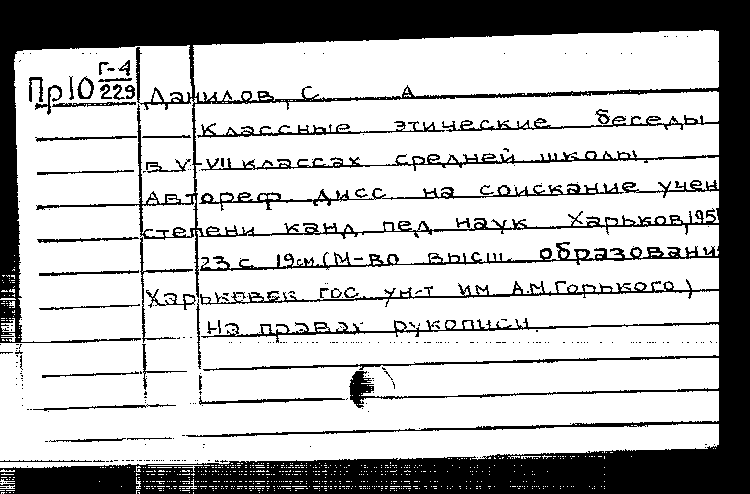 Г-4
Пр10 229 Данилов, С. А.
Классные этические беседы
в V-VII классах средней школы.
Автореф. дисс. на соискание учен
степени канд. пед. наук Харьков, 195
23 с. 19см. (М-во высш. образовани
Харьковск гос. ун-т им А.М. Горького)
На правах рукописи.